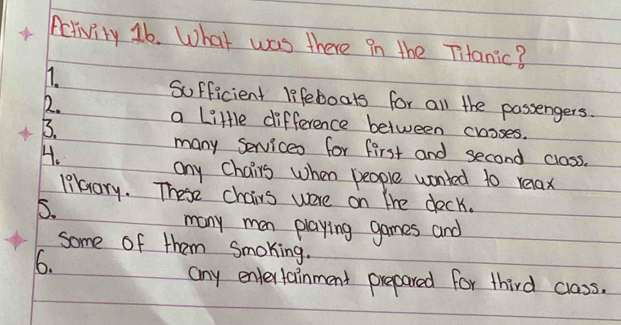 Activity 1b. What was there in the Titanic?
1. Sufficient lifeboats for all the passengers.
2. a Little difference between classes.
3. many services for first and second class.
4. any chairs when people wanted to relax
library. These chairs were on the deck.
5. many men playing games and
some of them smoking.
6. any entertainment prepared for third class.